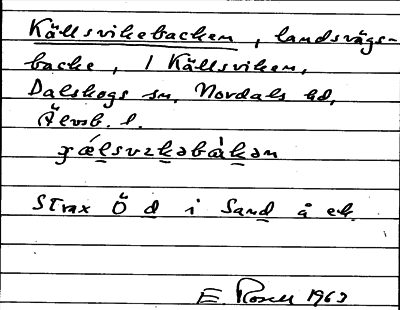 Källsvikebacken, landsvägs-
backe, i Källsviken,
Dalskogs sn. Nordals hd,
Älvsb. l.
Strax Ö d i Sand å ek.
E. Rosell 1963